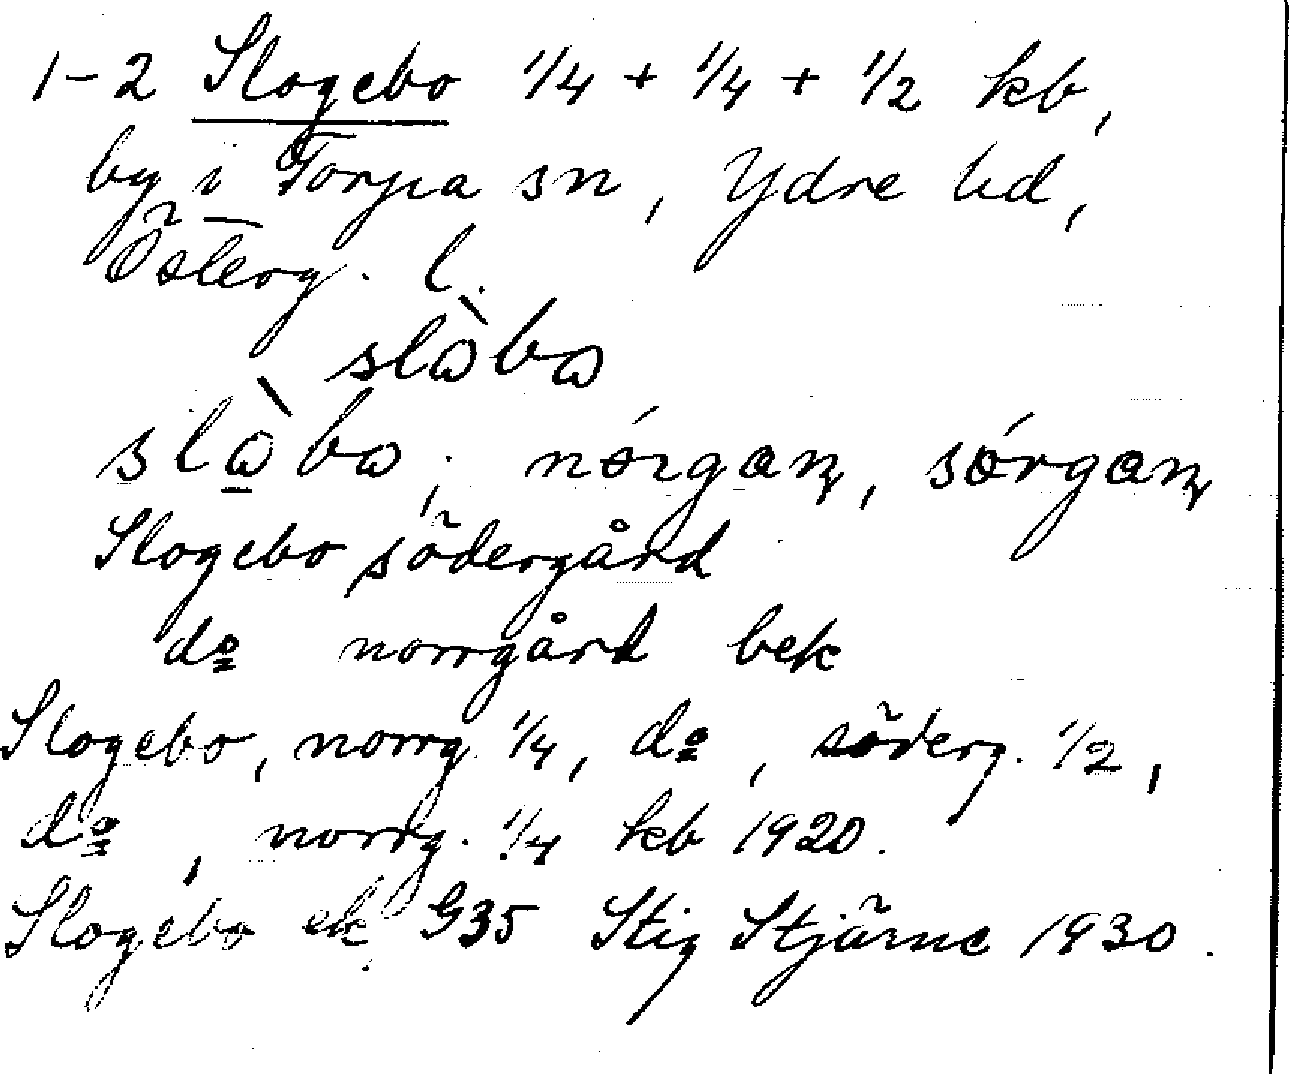 1-2 Slogebo 1/4 + 1/4 + 1/2 kb,
by i Torpa sn, Ydre hd,
Österg. l.
slὼbω
slὼ̱bω; nórgaɳ, sórgaɳ
Slogebo södergård
dº norrgård bek
Slogebo, norrg. 1/4, dº, söderg. 1/2,
dº, norrg. 1/4 kb 1920.
Slogebo ek G35 Stig Stjärne 1930.